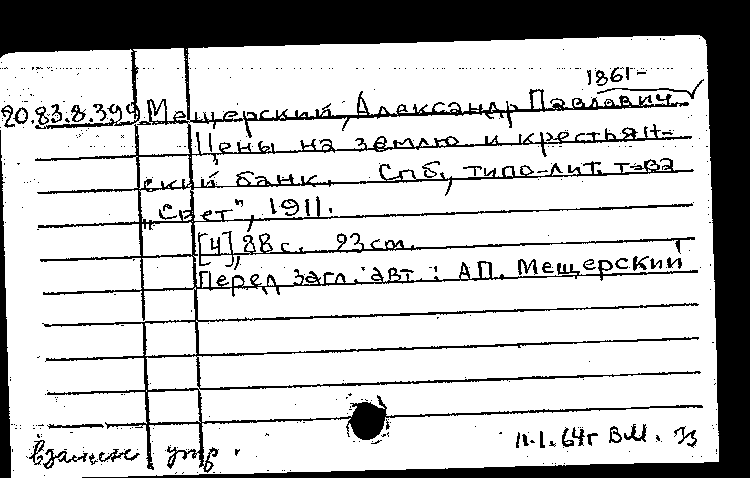 1861-
20.83.8.399 Мещерский, Александр Павлович
Цены на землю и крестьян-
ский банк. Спб., типо-лит. т-ва
„Свет", 1911.
[4], 88 с. 23 см.
Перед загл. авт.: А.П. Мещерский
взамен утр.
11.1.64г В.М.